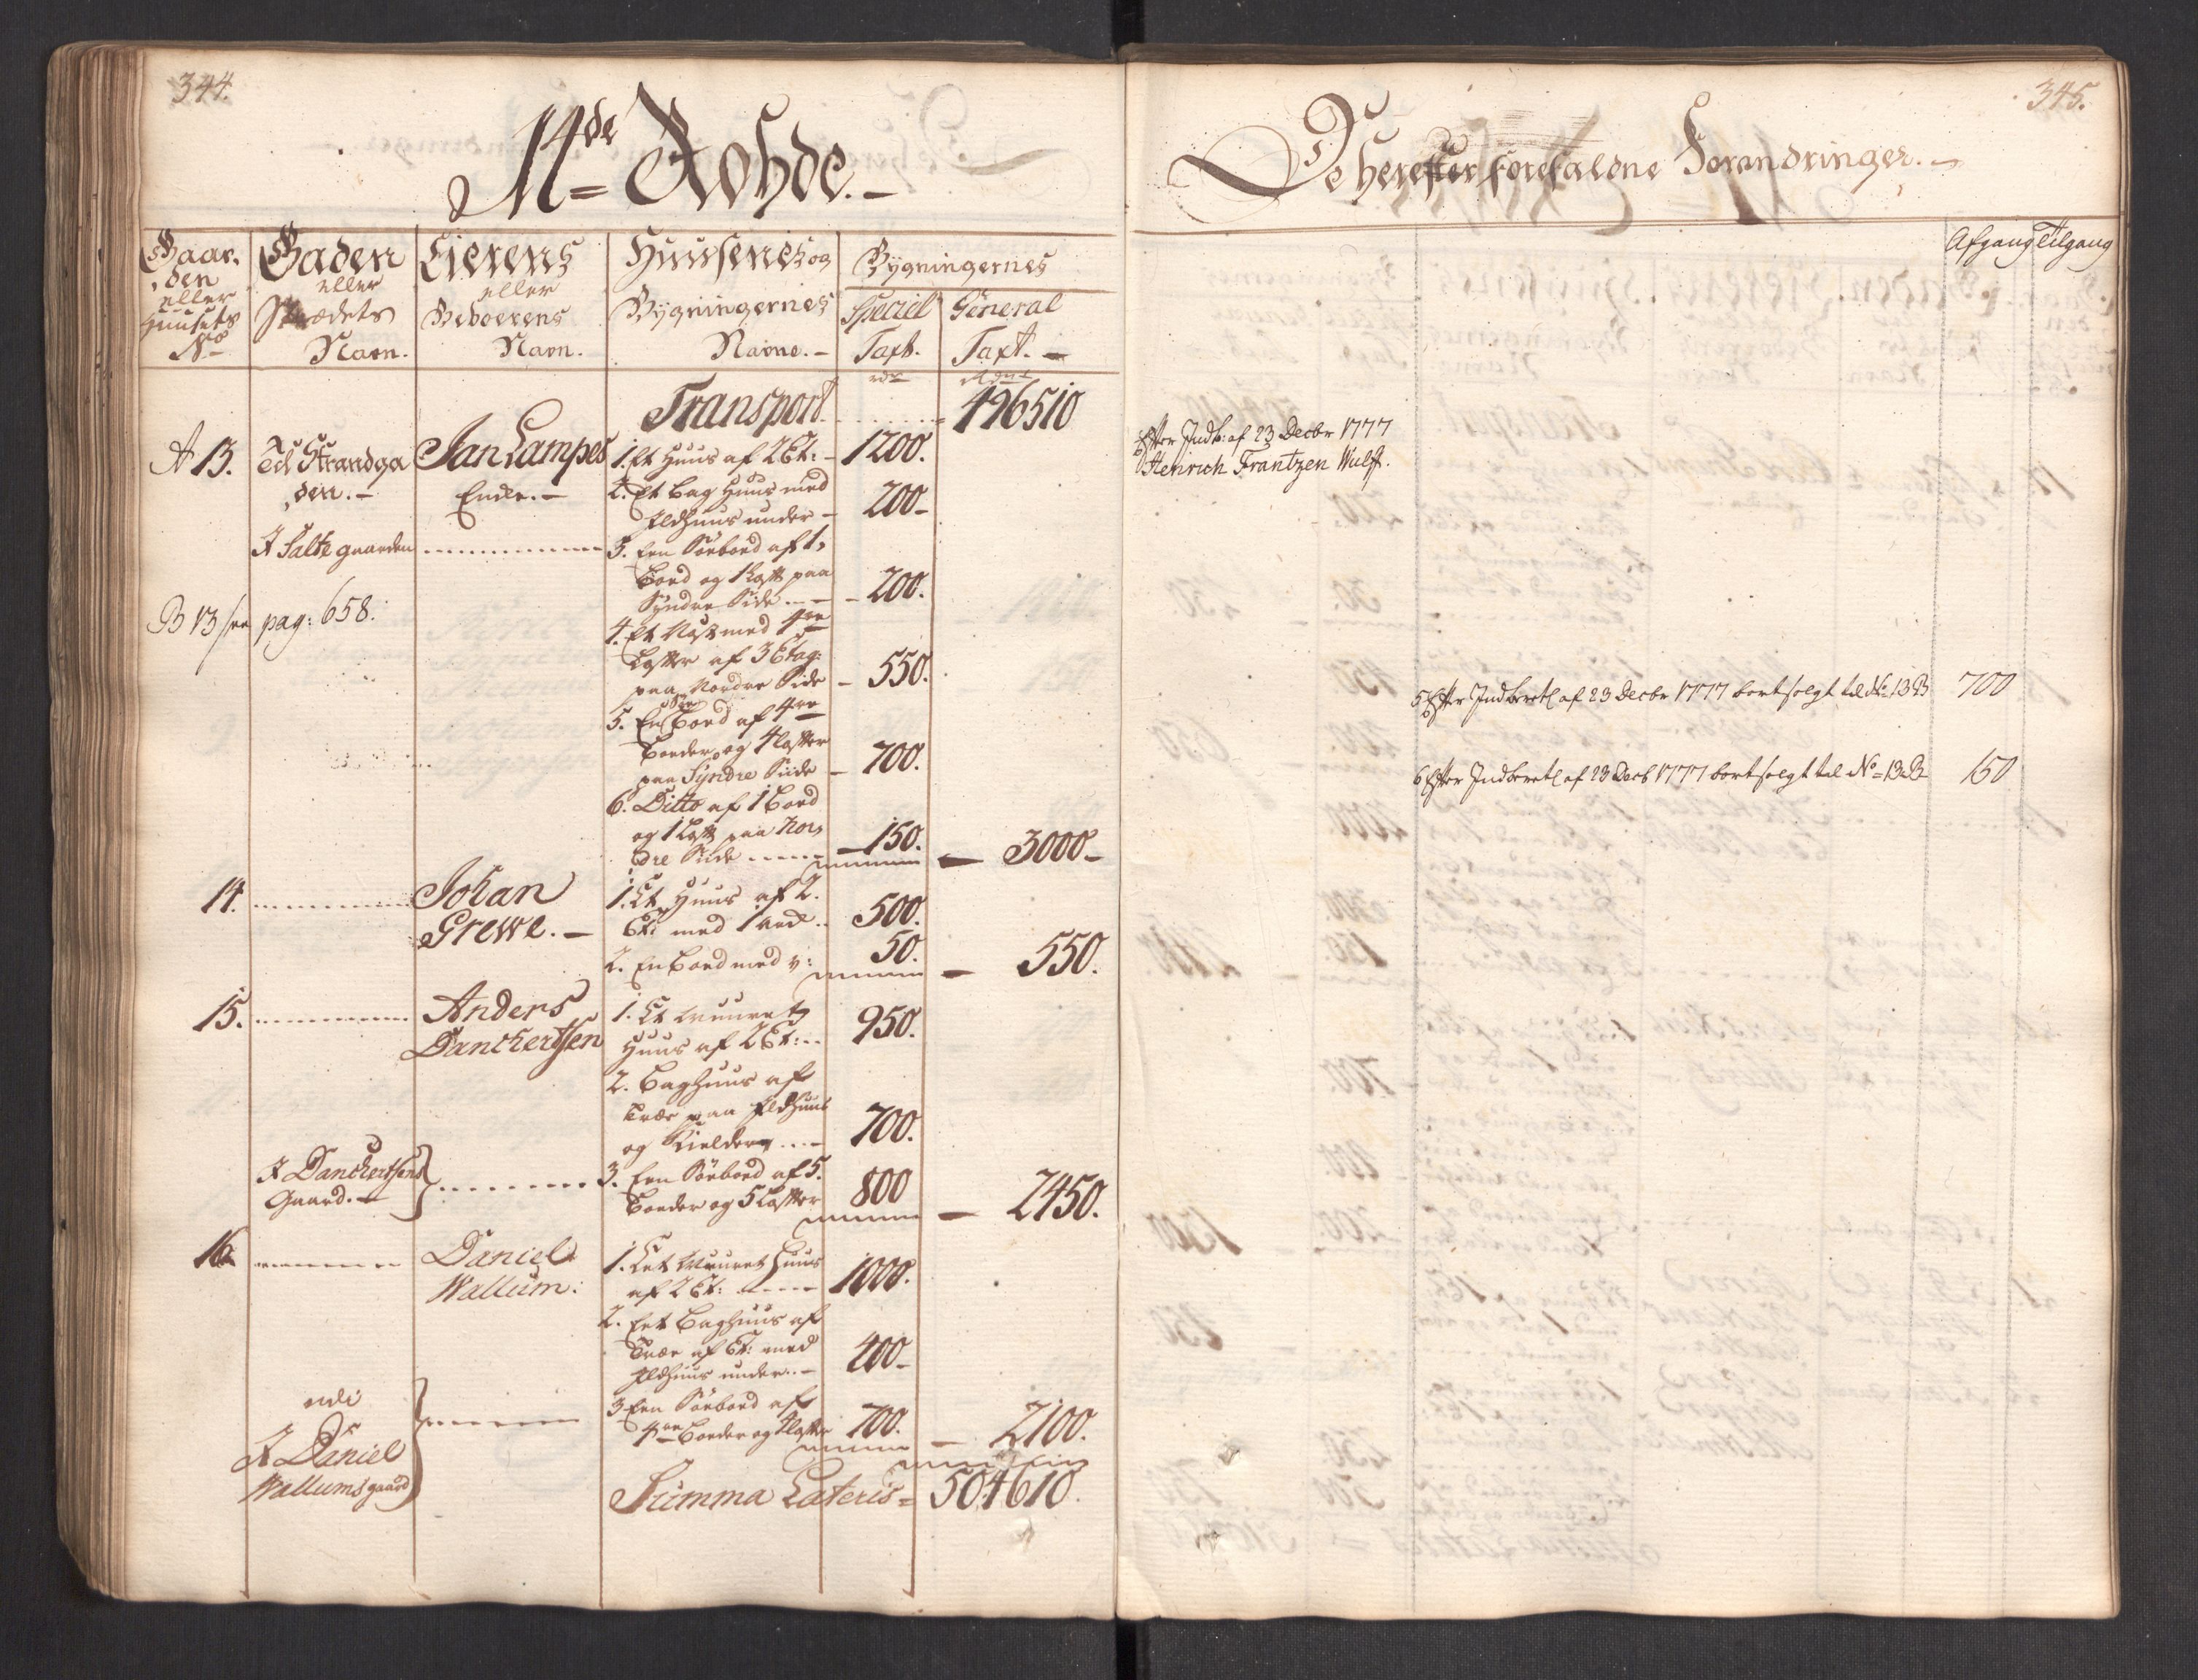 344.
14de Rohde.
Gaar-
den
eller
Huusets
No
Gaden
eller
Strædets
Navn.
Eierens
eller
Beboerens
Navn.
Huusenes og
Bygningernes
Navne.
Bygningernes
Speciel
Taxt.
General
Taxt.
rdr
Transport
496510
A 13.
Til Strandga
den.
Jan Lampes
Enke.
1. Et Huus af 2 Et:
1200.
2. Et Bag Huus med
Ildhuus under
200
I Salte gaarden
3. Een Søeboed af 1
Boed og 1 Loft paa
Syndre Side
200.
B 13 see pag: 658.
4. Et Nøst med 4re
Lofter af 3 Etag:
paa Nordre Side
550.
5. En Søe Boed af 4re
Boeder og 4 Lofter
paa Syndre Siide
700.
6. Ditto af 1 Boed
og 1 Loft paa Nor,
dre Side
150.
3000
14.
Johan
Grewe.
1. Et Huus af 2.
Et: med
500.
2. En Boed med
50.
550.
15.
Anders
Danckertsen
1. Et Muuret
Huus af 2 Et:
950.
2. Baghuus af
Træe paa Ildhuus
og Kielder
700.
I Danckertsens
Gaard.
3. Een Søeboed af 5.
Boeder og 5 Lofter
800
2450.
16
Daniel
Wallum:
1. Eet Muuret Huus
af 2 Et:
1000.
2. Eet Baghuus af
Træe af Et: med
Ildhuus under
400
I Daniel
Wallums gaard
3 Een Søeboed af
4re Boeder og 4 Lofter
700.
2100.
Summa Lateris
504610.
345.
De herefter forefaldne Forandringer.
Afgang
Tilgang
Efter Indb: af 23 Decbr 1777
Henrich Frantzen Wulff.
5 Efter Indberetl af 23 Decbr 1777 bortsolgt til No 13 B
700
6 Efter Indberetl af 23 Decb 1777 bortsolgt til No 13 B
150